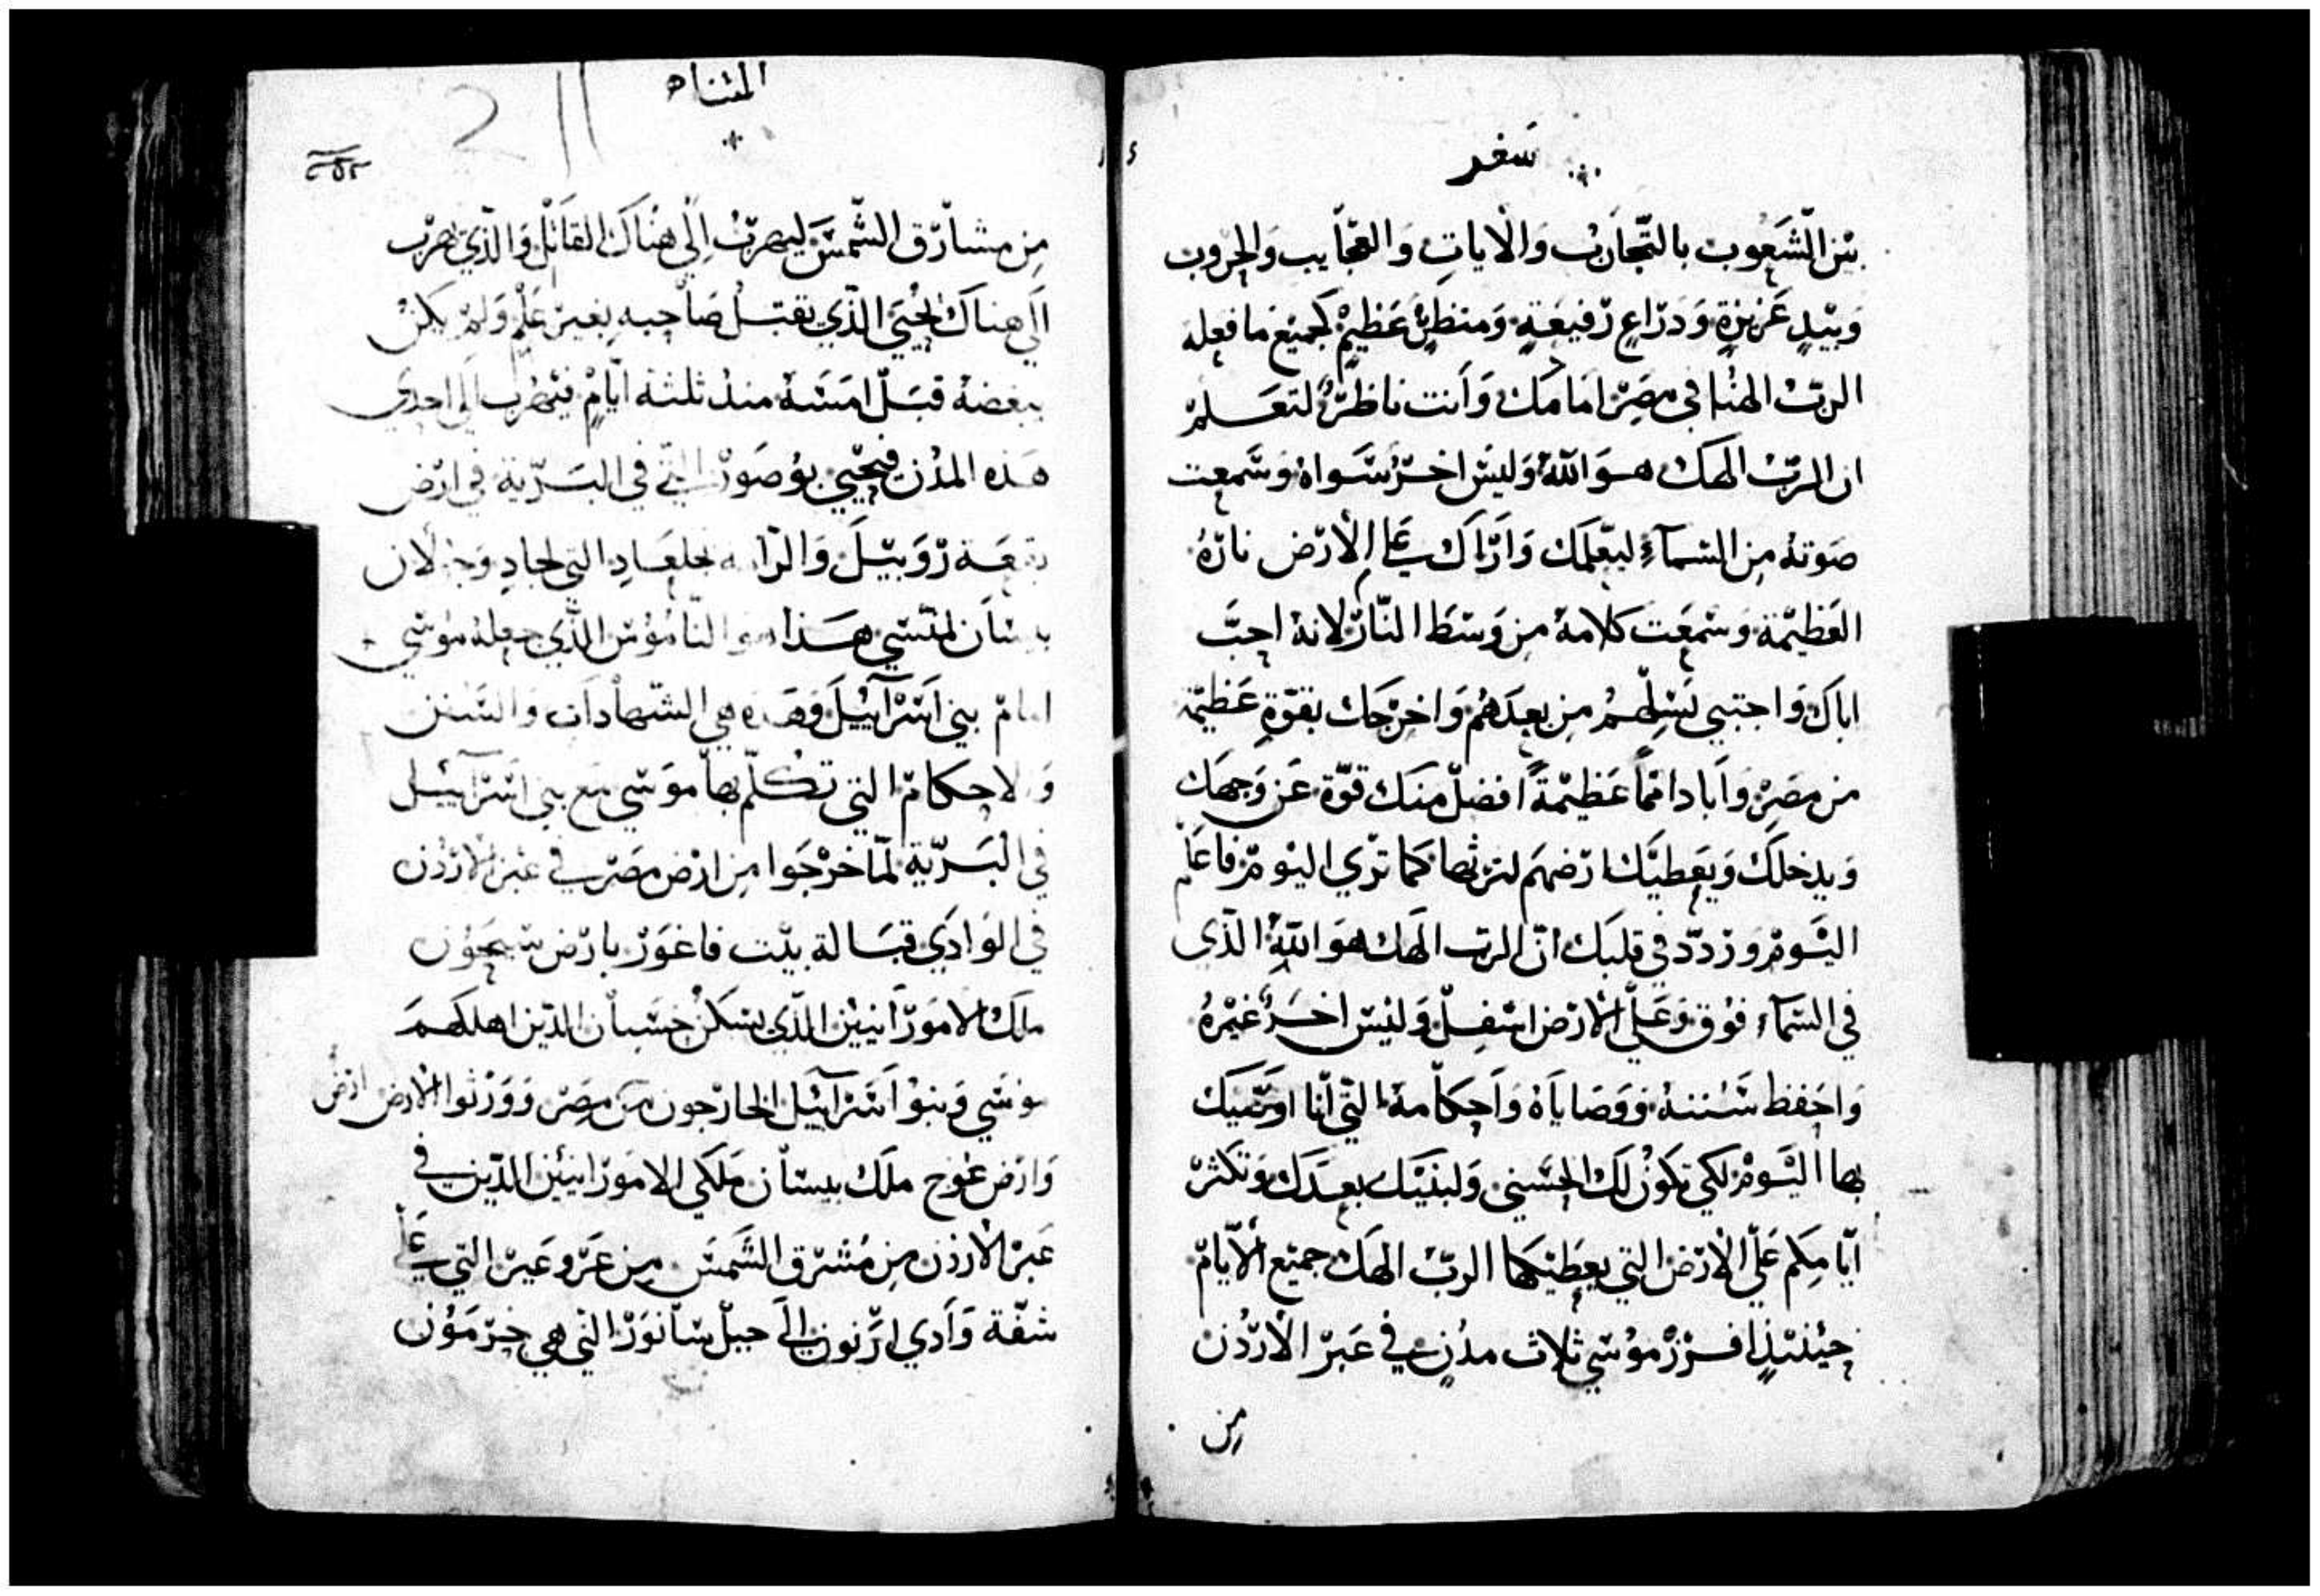 سفر
بين الشعوب بالتجارب والايات والعجايب والحروب
وبيد عزيزة ودراع رفيعة ومنظر عظيم كجميع ما فعله
الرب الهنا في مصر امامك وانت ناظر لتعلم
ان الرب الهك هو الله وليس اخر سواه وسمعت
صوته من السماء ليعلمك واراك على الارض ناره
العظيمة وسمعت كلامه من وسط النار لانه احب
اباك واجتبي نسلهم من بعدهم واخرجك بقوة عظيمة
من مصر واباد امماً عظيمةً افضل منك قوة عن وجهك
ويدخلك ويعطيك ارضهم لترثها كما تري اليوم فاعلم
اليوم وردد في قلبك ان الرب الهك هو الله الذي
في السماء فوق وعلى الارض اسفل وليس اخر غيره
واحفظ سننه ووصاياه واحكامه التي انا اوصيك
بها اليوم لكي تكون لك الحسني ولبنيك بعدك وتكثر
ايامكم على الارض التي يعطيكها الرب الهك جميع الايام
حينئذ افرز موسي ثلاث مدن في عبر الاردن
من
المثناه
٢٥٢
من مشارق الشمس ليهرب الي هناك القاتل والذي يهرب
الي هناك يحيي الذي يقتل صاحبه بغير علم ولم يكن
يبغضه قبل امسه منذ ثلثة ايام فيهرب الي احدي
هذه المدن فيحيي بوصور التي في البرية في ارض
بقعة روبيل والرا بجلعاد التي لجاد وجولان
بيسان لمنسي هذا هو الناموس الذي جعله موسي
امام بني اسرآييل وهذه هي الشهادات والسنن
والاحكام التي تكلم بها موسي مع بني اسرآييل
في البرية لما خرجوا من ارض مصر في عبر الاردن
في الوادي قبالة بيت فاغور بارض سيحون
ملك الامورانيين الذي يسكن حسبان الذين اهلكهم
موسي وبنوا اسرآييل الخارجون من مصر وورثوا الارض ارضه
وارض عوج ملك بيسان ملكي الامورانيين الذين في
عبر الاردن من مشرق الشمس من عروعير التي على
شفة وادي ارنون الي جبل سانور التي هي حرمون